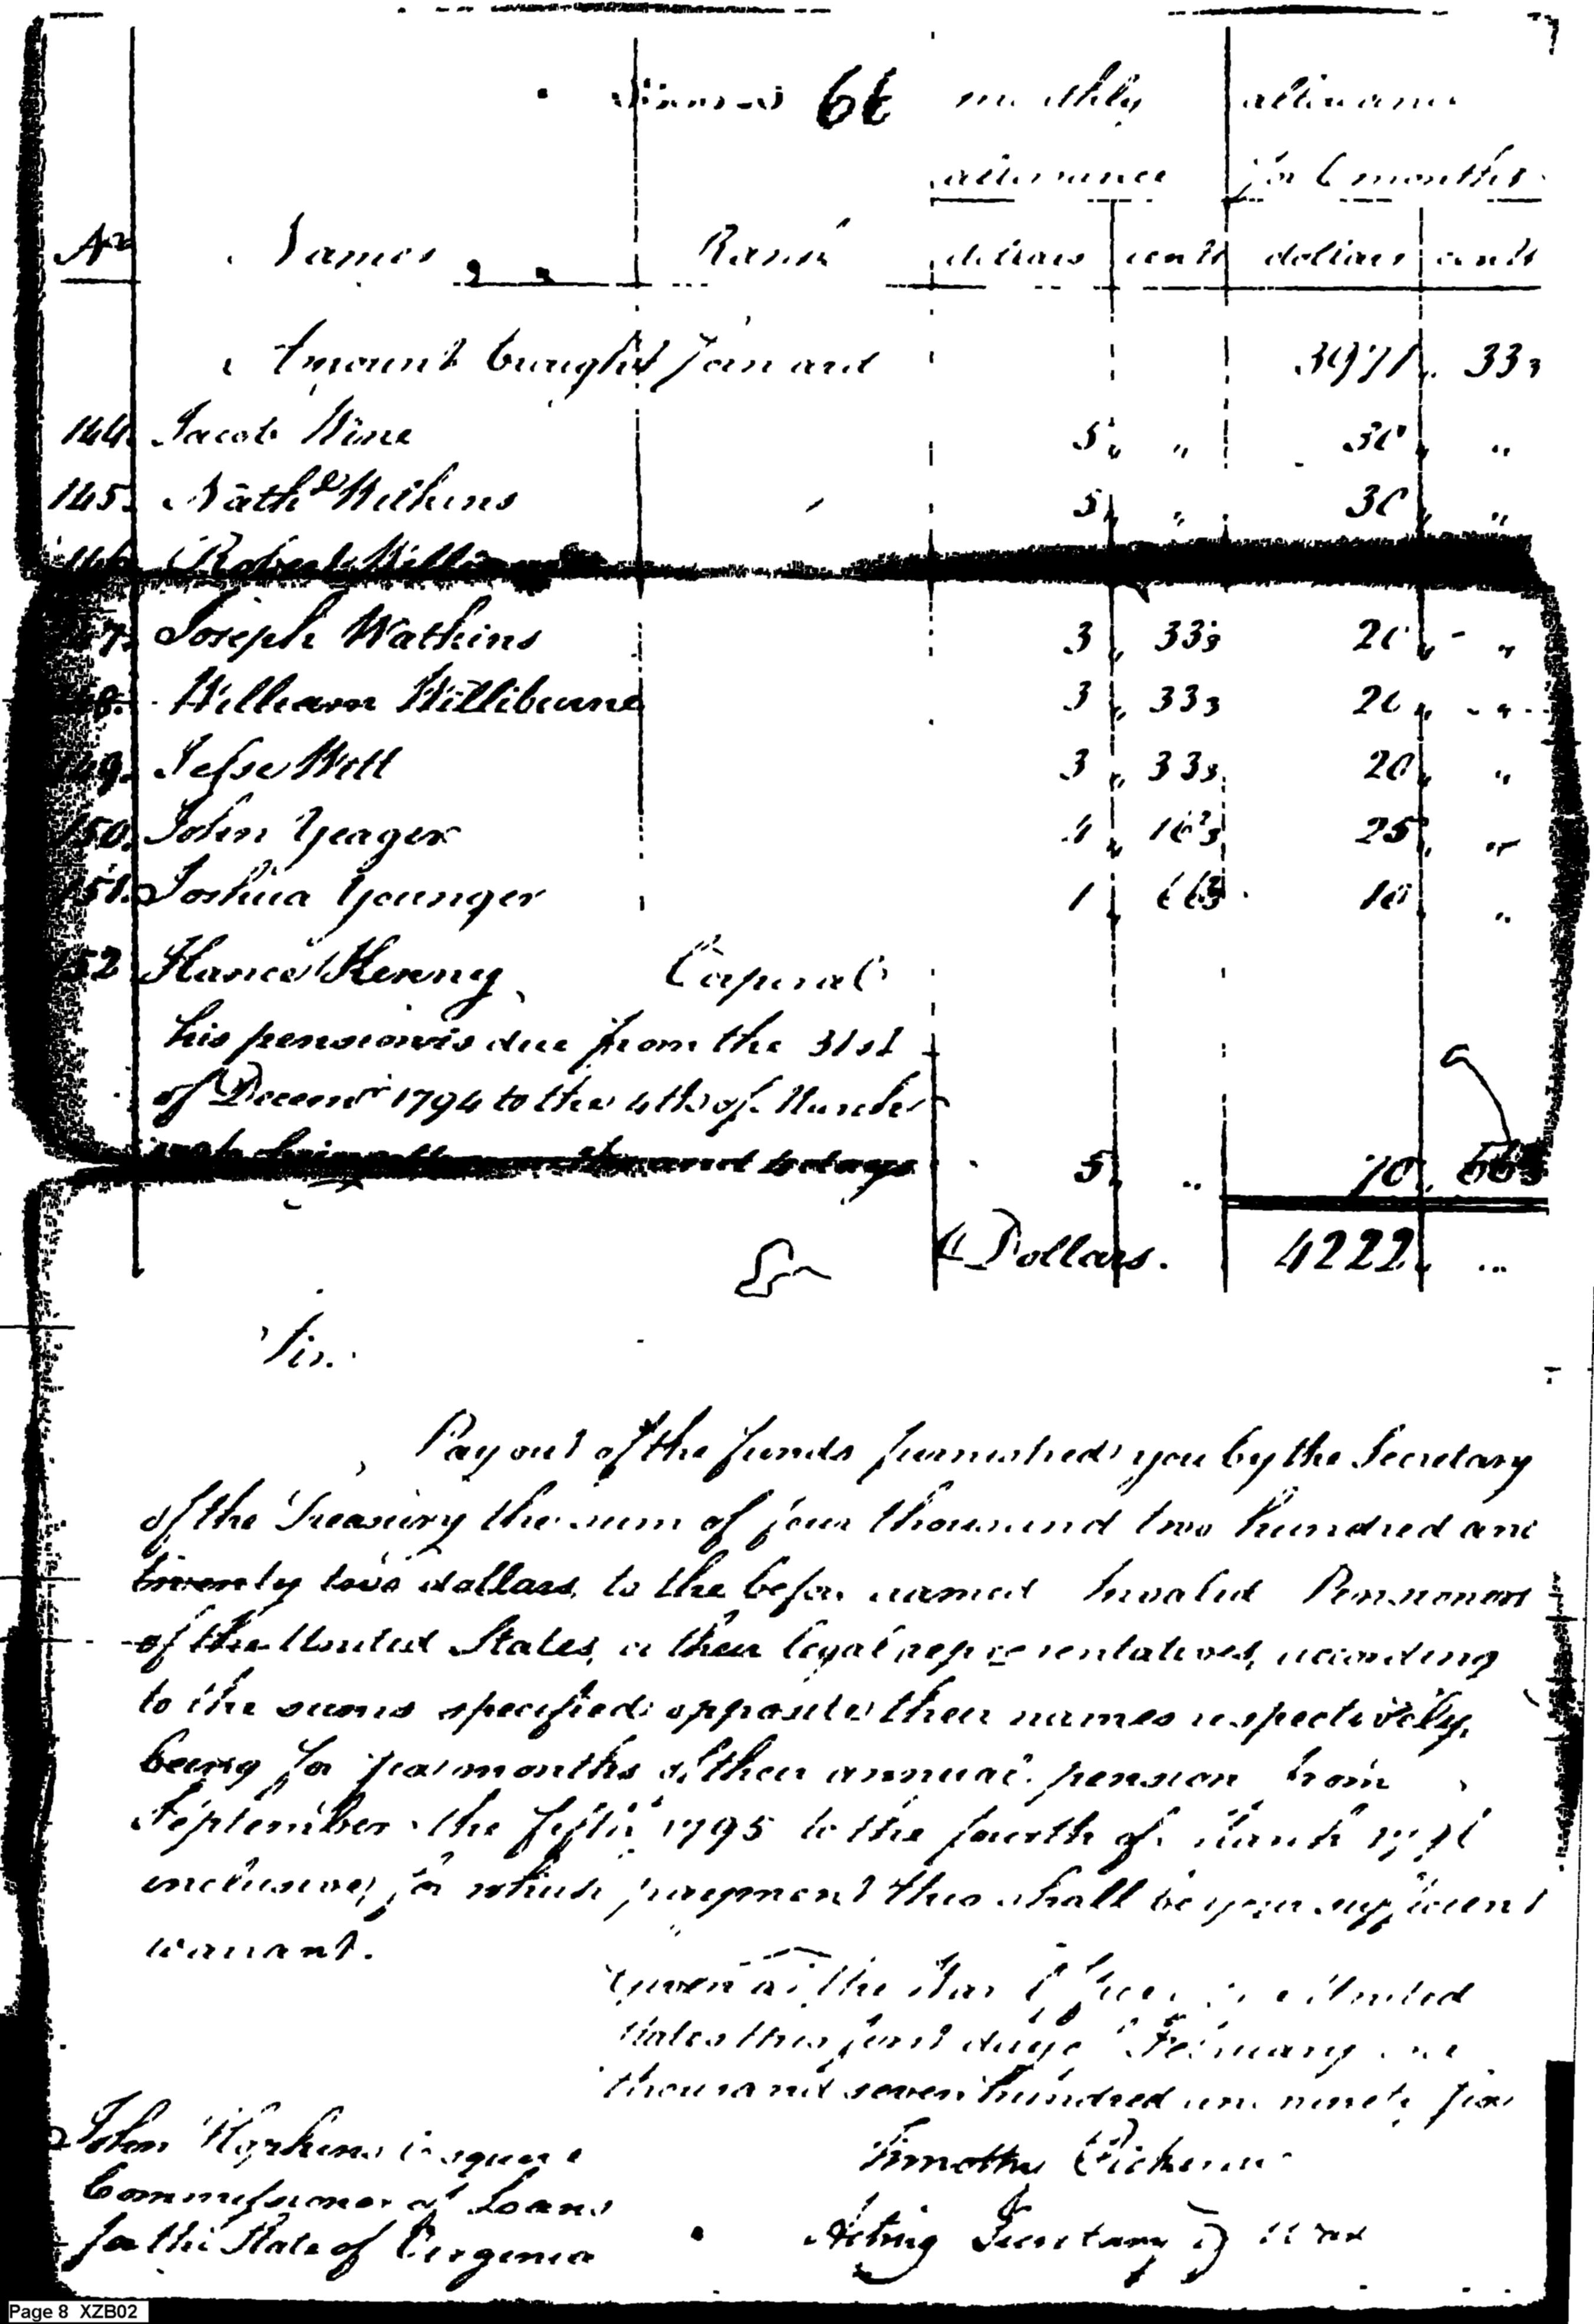 66 monthly allowance
allowance for 6 months
No Names Rank dollars cents dollars cents
Amount brought forward 3971 .. 33⅓
144. Jacob Wine 5 " " 30 " "
145. Nathl Wilkens 5 " " 30 " "
146. Robert
147. Joseph Watkins 3 " 33⅓ 20 " "
148. William Williburne 3 " 33⅓ 20 " "
149. Jesse Witt 3 " 33⅓ 20 " "
150. John Yeager 4 " 16⅔ 25 " "
151. Joshua Younger 1 66⅔ 10 "
152 Kenny Corporal
his pension is due from the 31st
of Decemr 1794 to the 4th of March
and days 5 " .. 70 .. 66⅔
Dollars. 4222 " ...
Sir.
Pay out of the funds furnished you by the Secretary
of the Treasury the sum of four thousand two hundred and
twenty two dollars, to the before named Invalid Pensioners
of the United States, or their legal representatives, according
to the sums specified opposite their names respectively,
being for six months of their annual pension from
September the fifth 1795 to the fourth of March 1796
inclusive, for which payment this shall be your sufficient
warrant.
Given at the War Office of the United
States this first day of February one
thousand seven hundred and ninety six
John Hopkins Esquire
Commissioner of Loans
for the State of Virginia
Timothy Pickering
Acting Secretary of War
Page 8 XZB02